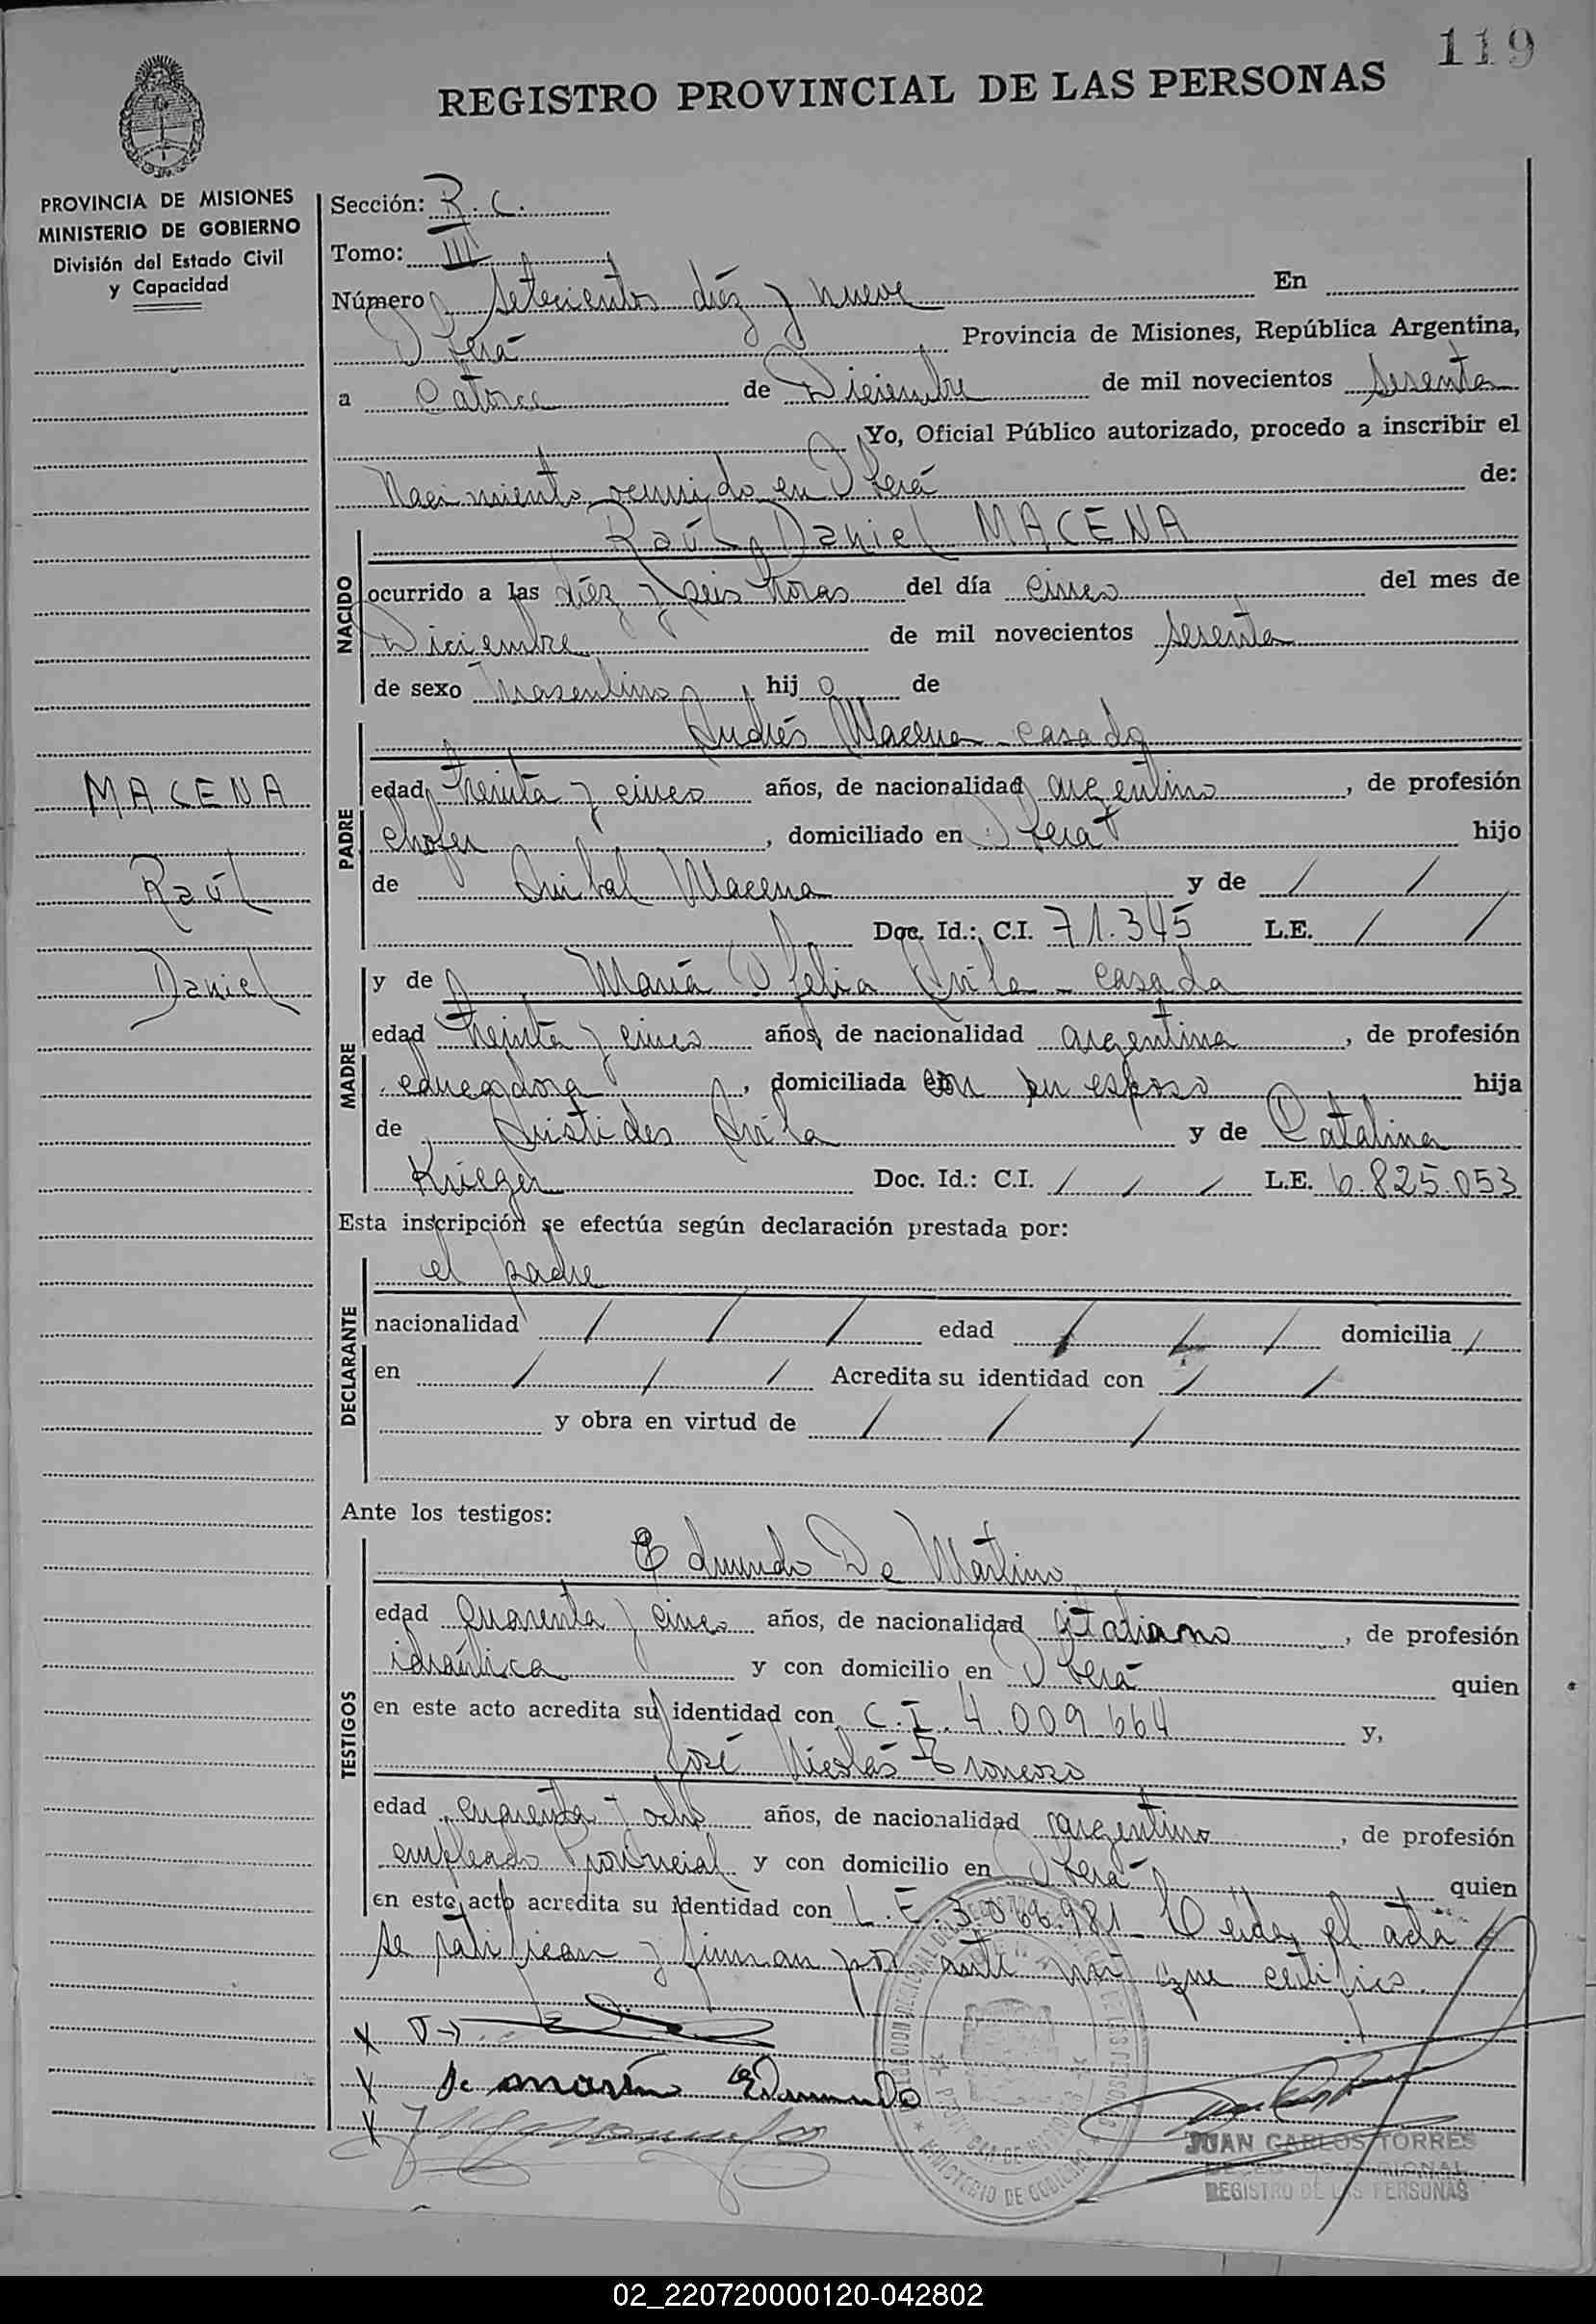 119
REGISTRO PROVINCIAL DE LAS PERSONAS
PROVINCIA DE MISIONES
MINISTERIO DE GOBIERNO
División del Estado Civil
y Capacidad
MACENA
Raúl
Daniel
Sección: R.C.
Tomo: III
Número Setecientos diéz y nueve En
Oberá Provincia de Misiones, República Argentina,
a Catorce de Diciembre de mil novecientos sesenta
Yo, Oficial Público autorizado, procedo a inscribir el
Nacimiento ocurrido en Oberá de:
NACIDO
Raúl Daniel MACENA
ocurrido a las diéz y seis horas del día cinco del mes de
Diciembre de mil novecientos sesenta
de sexo masculino hijo de
PADRE
Andrés Macena - casado
edad treinta y cinco años, de nacionalidad argentino, de profesión
chofer, domiciliado en Oberá hijo
de Anibal Macena y de / /
Doc. Id.: C.I. 71.345 L.E. / /
MADRE
y de María Ofelia Avila - casada
edad treinta y cinco años, de nacionalidad argentina, de profesión
educadora, domiciliada con su esposo hija
de Aristides Avila y de Catalina
Krieger Doc. Id.: C.I. / / / L.E. 6.825.053
Esta inscripción se efectúa según declaración prestada por:
DECLARANTE
el padre
nacionalidad / / / edad / / / domicilia /
en / / / Acredita su identidad con / /
y obra en virtud de / / /
Ante los testigos:
TESTIGOS
Edmundo De Martino
edad cuarenta y cinco años, de nacionalidad italiano, de profesión
idráulica y con domicilio en Oberá quien
en este acto acredita su identidad con C.I. 4.009.664 y,
José Nicolás
edad cuarenta y ocho años, de nacionalidad argentino, de profesión
empleado Provincial y con domicilio en Oberá quien
en este acto acredita su identidad con L.E. 3.066.981 - Leida el acta
se ratifican y firman por ante mi que certifico.
X
X De Edmundo
X
MINISTERIO DE GOBIERNO
JUAN CARLOS TORRES
DELEGADO REGIONAL
REGISTRO DE LAS PERSONAS
02_220720000120-042802